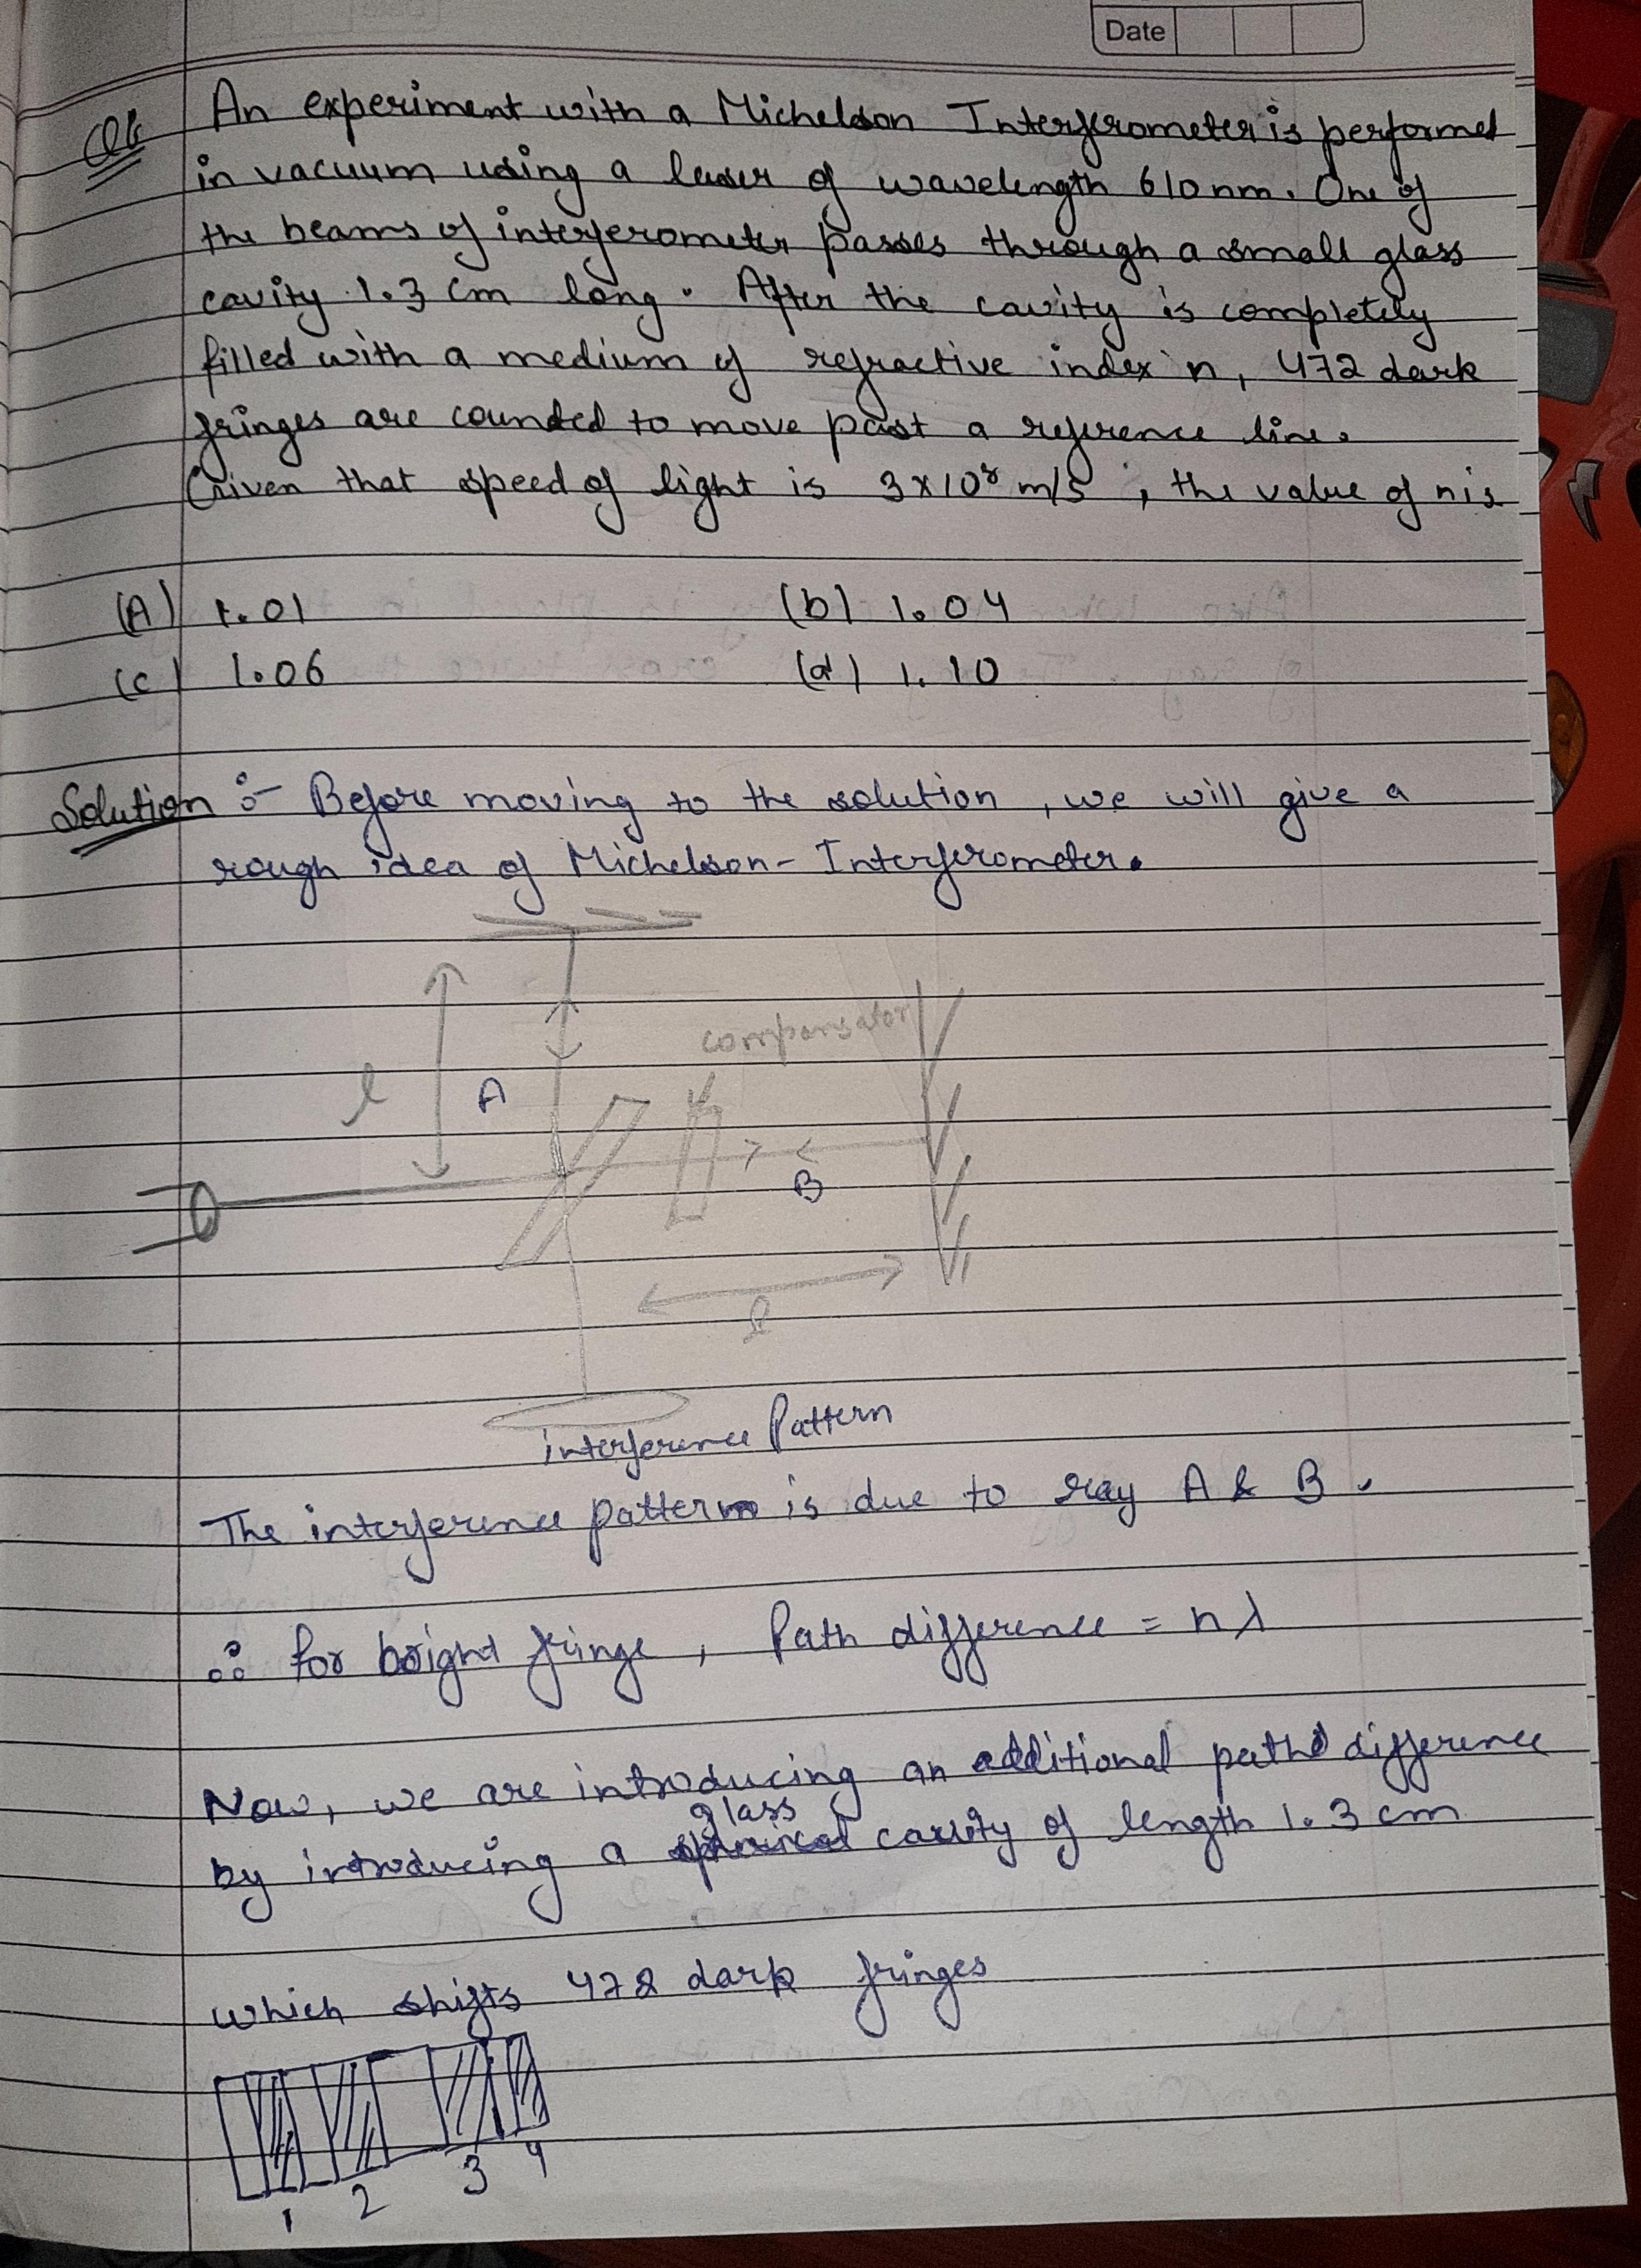 Date
Q6 An experiment with a Michelson Interferometer is performed
in vacuum using a laser of wavelength 610 nm. One of
the beams of interferometer passes through a small glass
cavity 1.3 cm long. After the cavity is completely
filled with a medium of refractive index n, 472 dark
fringes are counded to move past a reference line.
Given that speed of light is 3x10⁸ m/s, the value of n is
(A) 1.01 (b) 1.04
(c) 1.06 (d) 1.10
Solution :- Before moving to the solution, we will give a
rough idea of Michelson-Interferometer.
compansator
l A
B
l
interference Pattern
The interference pattern is due to ray A & B.
∴ for bright fringe, Path difference = nλ
Now, we are introducing an additional path difference
glass
by introducing a cavity of length 1.3 cm
which shifts 472 dark fringes
1 2 3 4